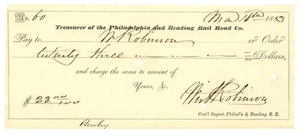 No. 60 Mar 16th 1853
Treasurer of the Philadelphia and Reading Rail Road Co.
Pay to W Robinson or Order
twenty three Dollars,
and charge the same to account of
Yours, &c.
$23 00/100 Wm Robinson
Gen'l Supt, Philad'a & Reading R. R.